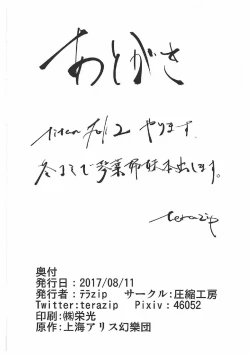 あとがき
2 やります.
冬までに琴葉姉妹本出します。
terazip
奥付
発行日：2017/08/11
発行者：ﾃﾗzip サークル：圧縮工房
Twitter:terazip Pixiv：46052
印刷：㈱栄光
原作：上海アリス幻樂団